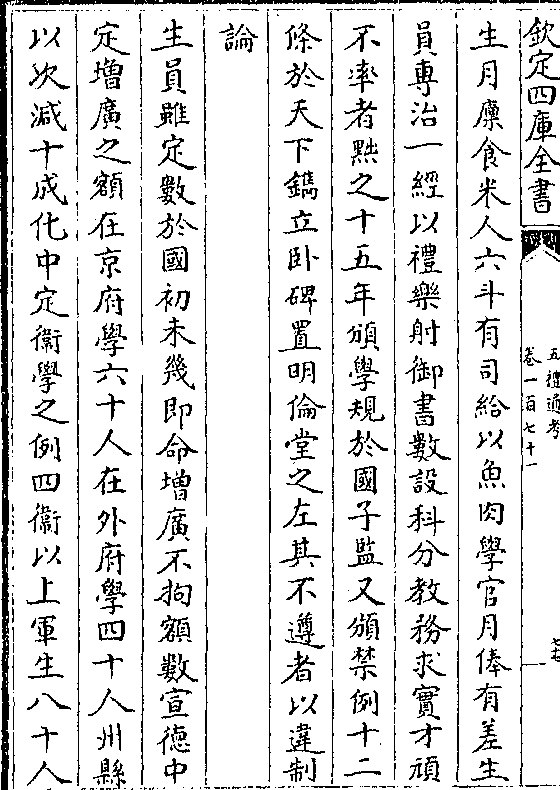 欽定四庫全書
五禮通考
卷一百七十一
生月廩食米人六斗有司給以魚肉學官月俸有差生
員專治一經以禮樂射御書數設科分教務求實才頑
不率者黜之十五年頒學規於國子監又頒禁例十二
條於天下鐫立卧碑置明倫堂之左其不遵者以違制
論
生員雖定數於國初未幾即命增廣不拘額數宣德中
定增廣之額在京府學六十人在外府學四十人州縣
以次減十成化中定衞學之例四衞以上軍生八十人